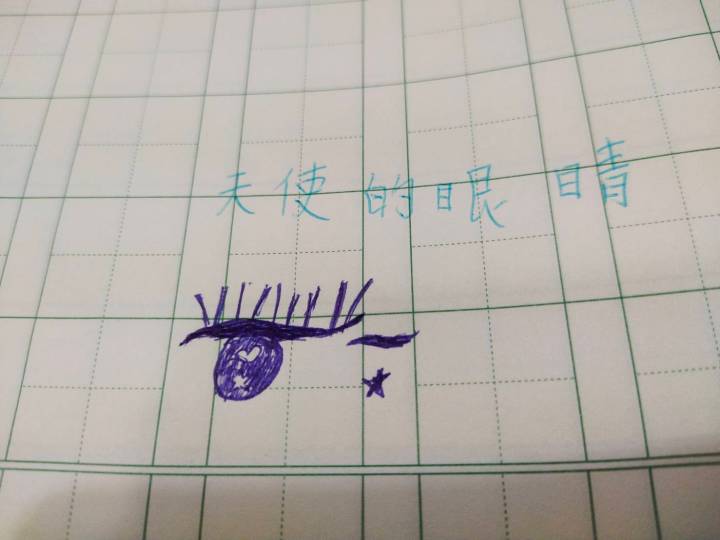 天使的眼睛